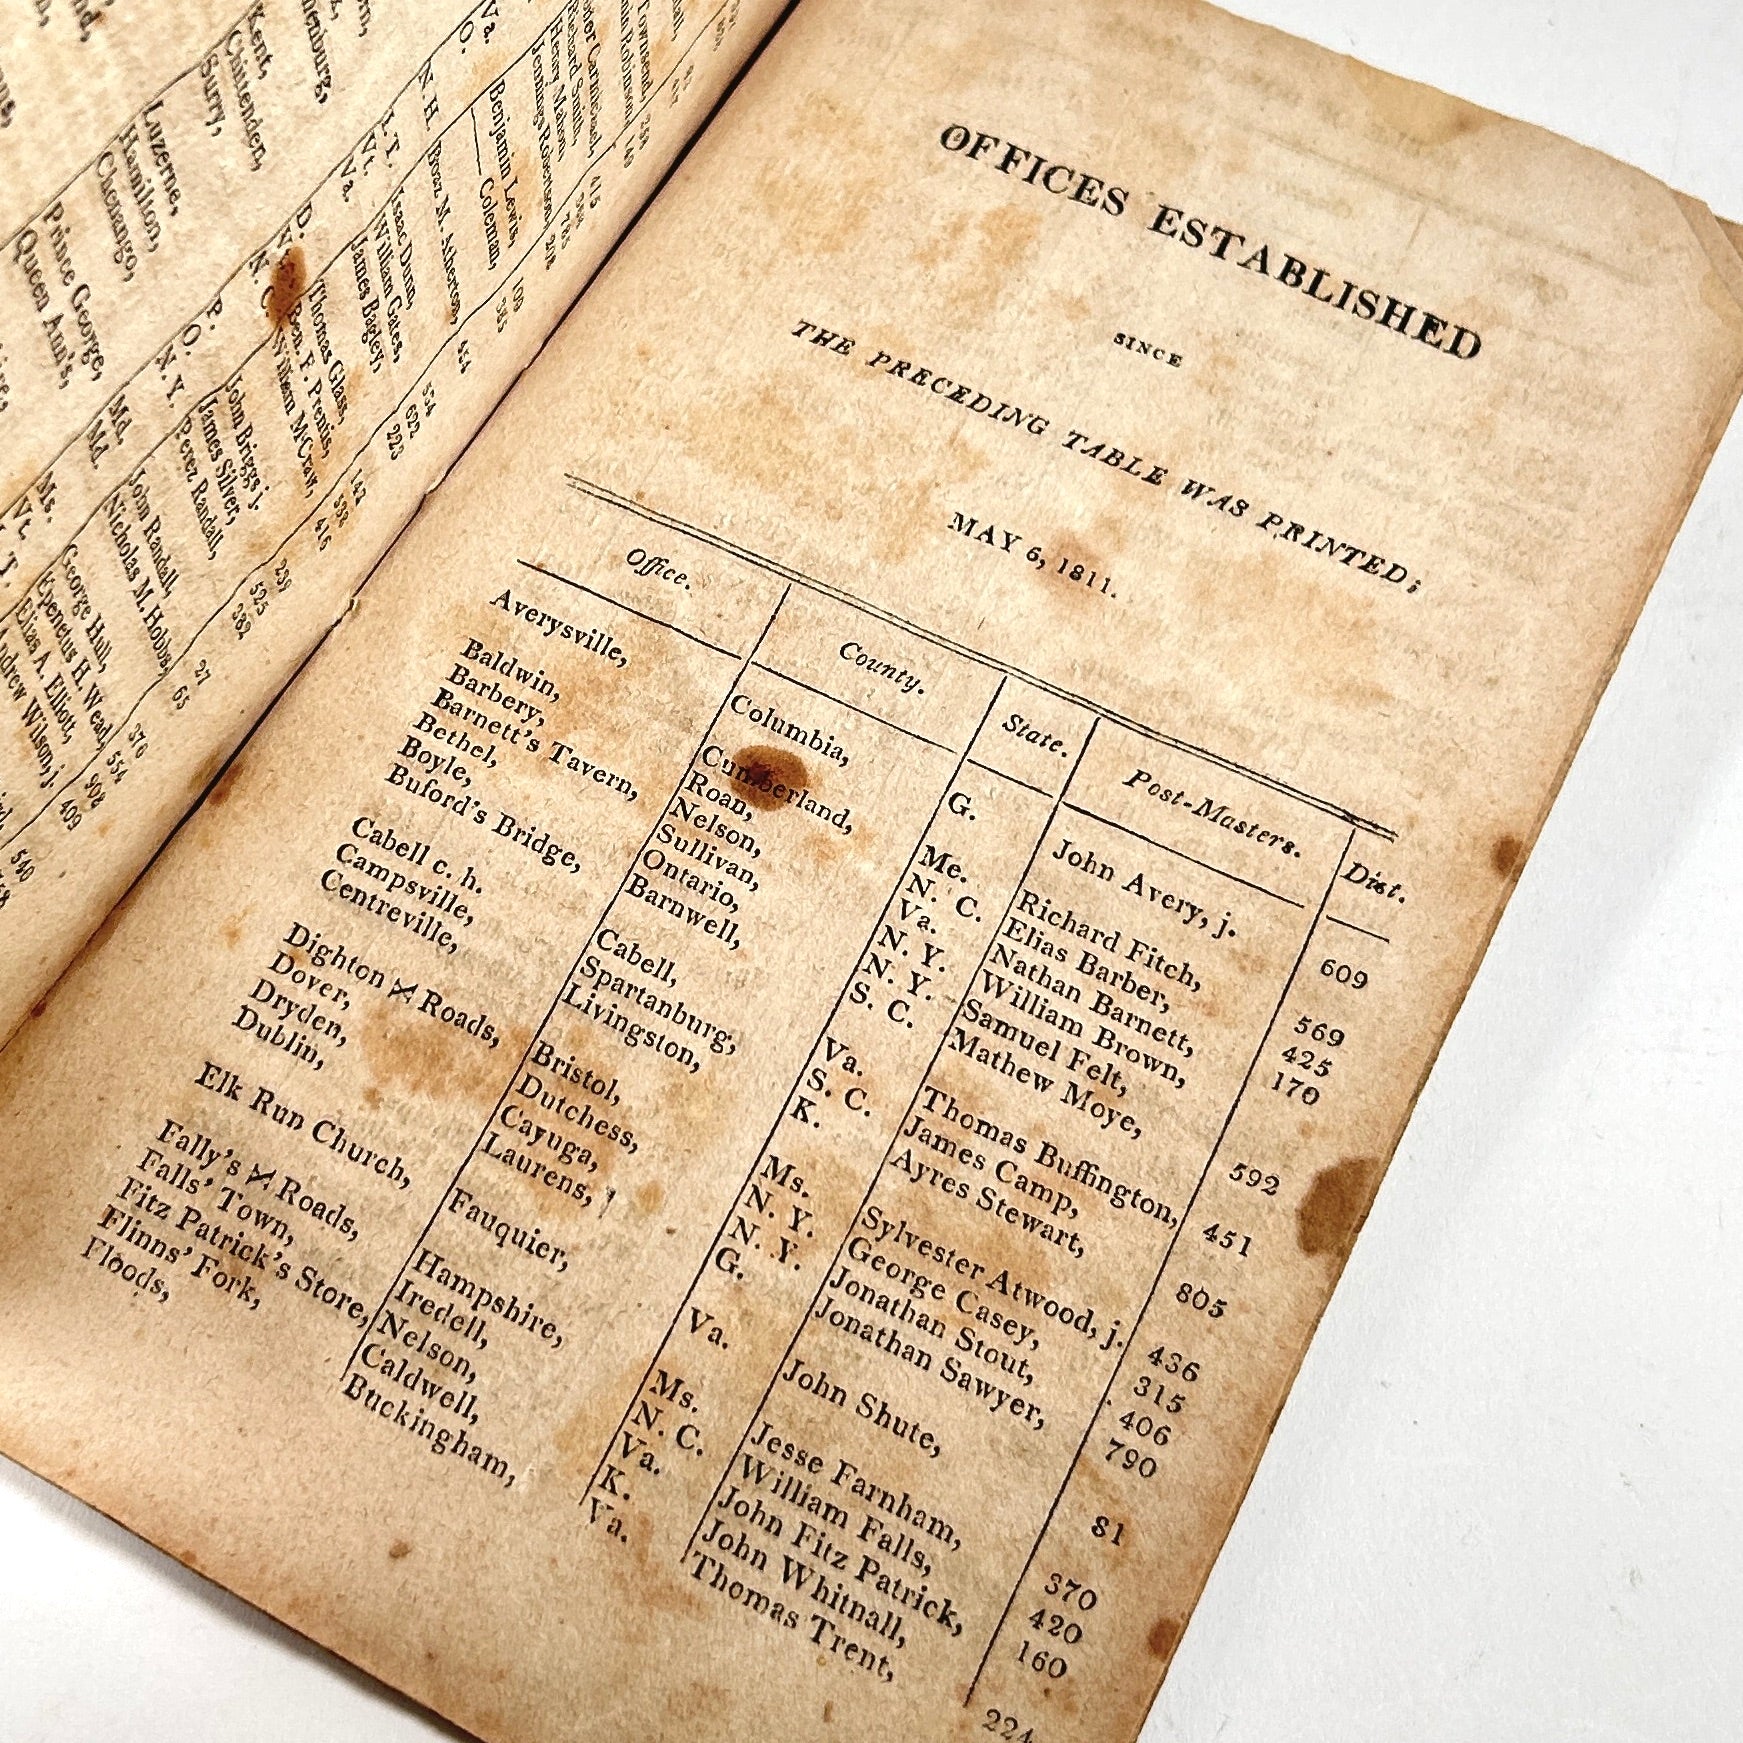 Richard Smith,
Henry Mahon,
Jennings Robertson, 208
Va. Benjamin Lewis, 109
O. —— Coleman, 385
N. H. Boaz M. Atherton, 454
Isaac Dunn,
Vt. William Gates, 622
Va. James Bagley, 223
Kent, D. Thomas Glass, 142
Chittenden, Ben. F. Prentis,
Surry, N. C. William M'Craw, 416
Luzerne, P. John Briggs j. 239
Hamilton, O. James Silver, 525
Chenango, N. Y. Perez Randall, 382
Prince George, Md. John Randall, 27
Queen Ann's, Md. Nicholas M. Hobbs, 65
Ms. George Hull, 376
Vt. Epenetus H. Wead, 554
Elias A. Elliott, 908
Andrew Wilson, j. 409
540
OFFICES ESTABLISHED
SINCE
THE PRECEDING TABLE WAS PRINTED;
MAY 6, 1811.
Office. County. State. Post-Masters. Dist.
Averysville, Columbia, G. John Avery, j. 609
Baldwin, Cumberland, Me. Richard Fitch, 569
Barbery, Roan, N. C. Elias Barber, 425
Barnett's Tavern, Nelson, Va. Nathan Barnett, 170
Bethel, Sullivan, N. Y. William Brown,
Boyle, Ontario, N. Y. Samuel Felt,
Buford's Bridge, Barnwell, S. C. Mathew Moye, 592
Cabell c. h. Cabell, Va. Thomas Buffington, 451
Campsville, Spartanburg, S. C. James Camp,
Centreville, Livingston, K. Ayres Stewart, 805
Dighton ⋈ Roads, Bristol, Ms. Sylvester Atwood, j. 436
Dover, Dutchess, N. Y. George Casey, 315
Dryden, Cayuga, N. Y. Jonathan Stout, 406
Dublin, Laurens, G. Jonathan Sawyer, 790
Elk Run Church, Fauquier, Va. John Shute, 81
Fally's ⋈ Roads, Hampshire, Ms. Jesse Farnham, 370
Falls' Town, Iredell, N. C. William Falls, 420
Fitz Patrick's Store, Nelson, Va. John Fitz Patrick, 160
Flinns' Fork, Caldwell, K. John Whitnall,
Floods, Buckingham, Va. Thomas Trent, 224